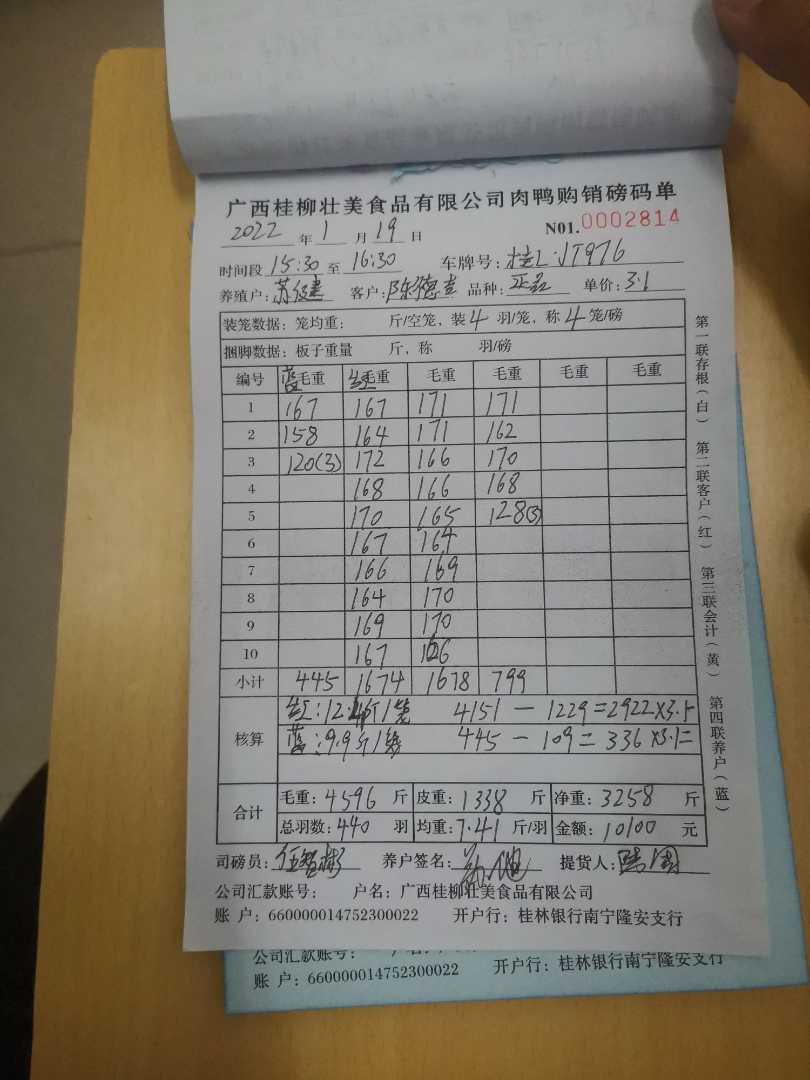 广西桂柳壮美食品有限公司肉鸭购销磅码单
2022 年 1 月 19 日 N01.0002814
时间段 15:30 至 16:30 车牌号: 桂L·JT976
养殖户: 苏 客户: 陈德 品种: 单价: 3.1
装笼数据: 笼均重: 斤/空笼, 装 4 羽/笼, 称 4 笼/磅
捆脚数据: 板子重量 斤, 称 羽/磅
编号 蓝毛重 红毛重 毛重 毛重 毛重 毛重
1 167 167 171 171
2 158 164 171 162
3 120(3) 172 166 170
4 168 166 168
5 170 165 128(3)
6 167 164
7 166 169
8 164 170
9 169 170
10 167 166
小计 445 1674 1678 799
核算
红: 4151 - 1229 = 2922 ×3.1
蓝: 9.9斤/笼 445 - 109 = 336 ×3.1=
合计
毛重: 4596 斤 皮重: 1338 斤 净重: 3258 斤
总羽数: 440 羽 均重: 7.41 斤/羽 金额: 10100 元
司磅员: 养户签名: 提货人:
公司汇款账号: 户名: 广西桂柳壮美食品有限公司
账 户: 660000014752300022 开户行: 桂林银行南宁隆安支行
第一联存根(白) 第二联客户(红) 第三联会计(黄) 第四联养户(蓝)
公司汇款账号:
账 户: 660000014752300022 开户行: 桂林银行南宁隆安支行